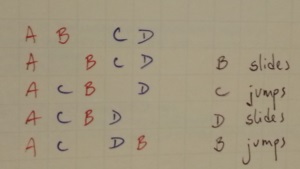 A B C D
A B C D B slides
A C B D C jumps
A C B D D slides
A C D B B jumps